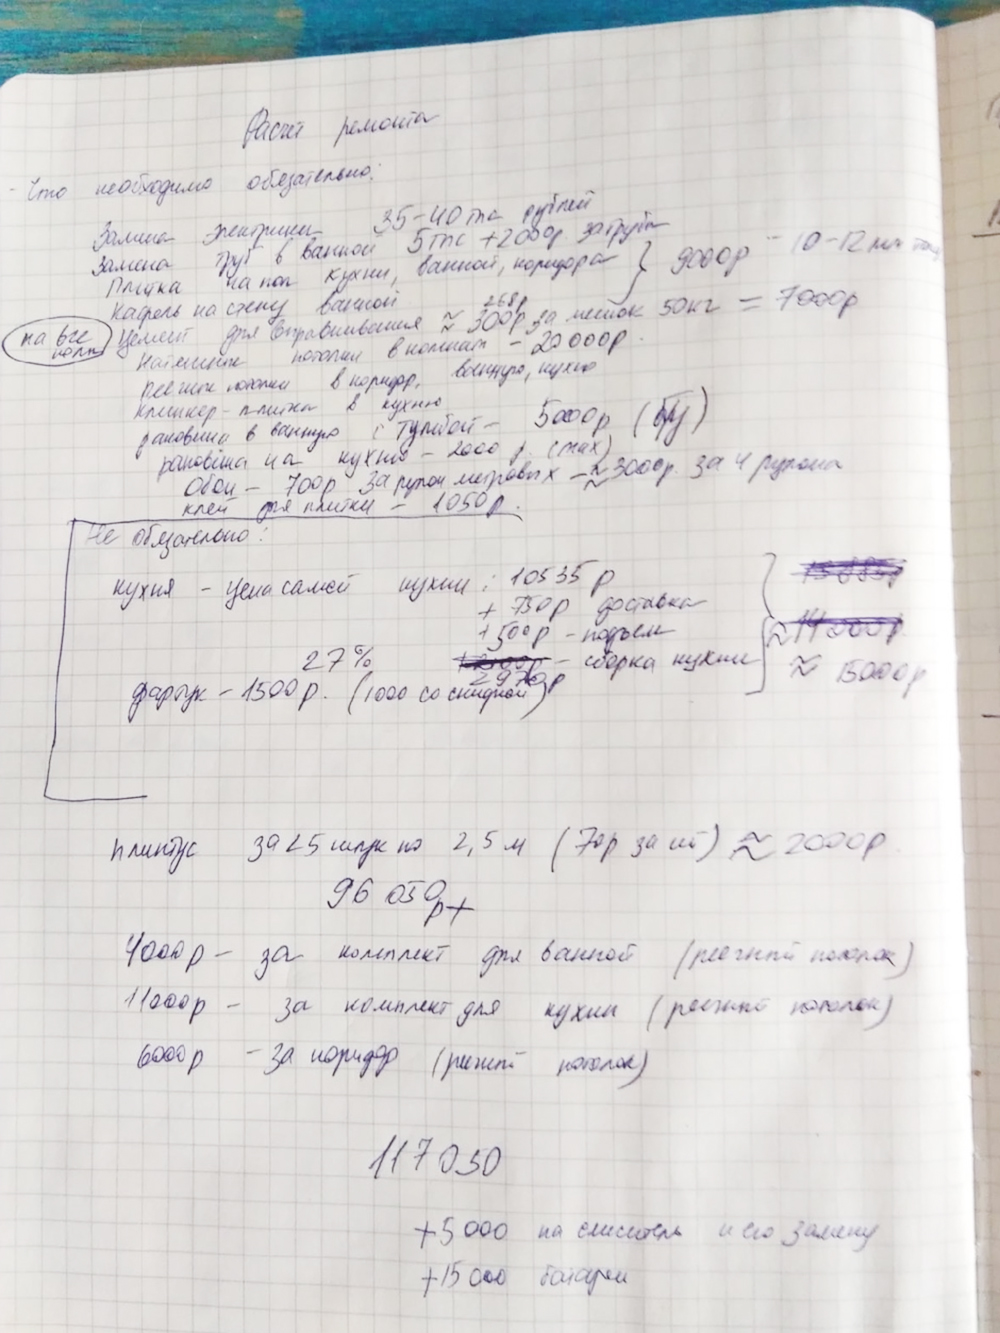 Расчет ремонта
- Что необходимо обязательно:
Замена электрики 35-40 тыс рублей
Замена труб в ванной 5 тыс + 2000р. за трубы
Плитка на пол кухни, ванной, коридора } 9000р - 10-12 мм толщ
Кафель на стену ванной
268р
на все полы Цемент для выравнивания ≈ 300р за мешок 50кг = 7000р
Натяжные потолки в комнат - 20000р.
реечные потолки в коридор, ванную, кухню
Клинкер-плитка в кухню
раковина в ванную с тумбой - 5000р (б/у)
раковина на кухню - 2000 р. (max)
Обои - 700р за рулон метровых - ≈3000р. за 4 рулона
клей для плитки - 1050р.
Не обязательно:
кухня - цена самой кухни: 10535 р
+ 750р доставка
+ 500р - подъем ≈ 14000р
27% - сборка кухни ≈ 15000р
2970р
фартук - 1500р. (1000 со скидкой)
плинтус за 25 штук по 2,5 м (70р за шт) ≈ 2000р.
96 050р +
4000р - за комплект для ванной (реечный потолок)
11000р - за комплект для кухни (реечный потолок)
6000р - за коридор (реечный потолок)
117 050
+ 5 000 на смеситель и его замену
+ 15 000 батареи